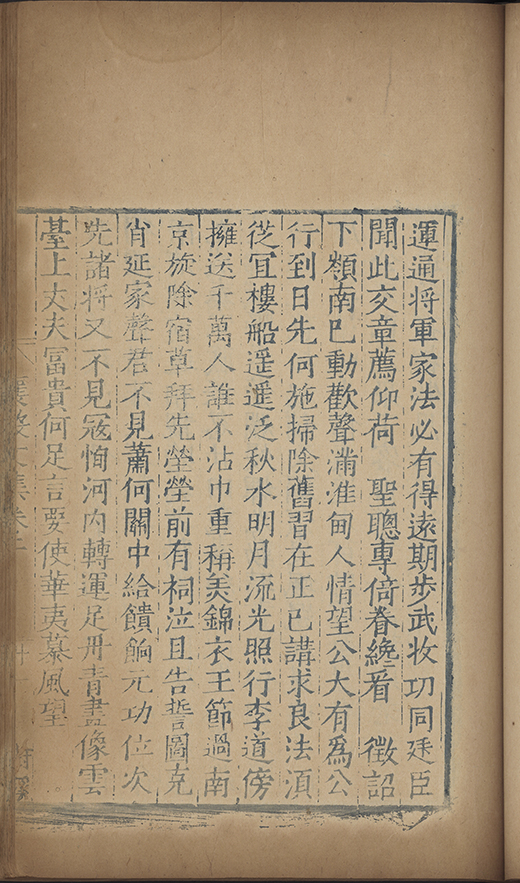 運通將軍家法必有得遠期步武收功同廷臣
聞此交章薦仰荷 聖聰專倍眷纔看 徵詔
下嶺南巳動歡聲滿淮甸人情望公大有爲公
行到日先何施掃除舊習在正巳講求良法湏
從冝樓船遥遥泛秋水明月流光照行李道傍
擁送千萬人誰不沾巾重稱羙錦衣王節過南
京旋除宿草拜先塋塋前有祠泣且告誓圖克
肖延家聲君不見蕭何關中給饋餉元功位次
先諸將又不見冦恂河内轉運足丹青畫像雲
臺上丈夫冨貴何足言要使華夷慕風望
襄毅文集卷二